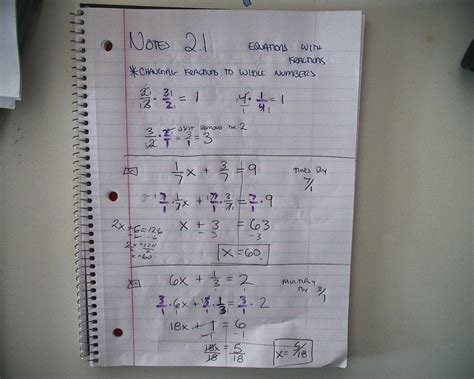 NOTES 2.1 EQUATIONS WITH FRACTIONS
*CHANGING FRACTIONS TO WHOLE NUMBERS
2/3 · 3/2 = 1 4/1 · 1/4 = 1
3/2 · 2/1 = 3/1 = 3 JUST REMOVE THE 2
EX 1/7 x + 3/7 = 9 TIMES BY 7/1
7/1 · 1/7 x + 7/1 · 3/7 = 7/1 · 9
x + 3 = 63
-3 -3
x = 60
2x + 6 = 126
-6 -6
2x = 120
x = 60
EX 6x + 1/3 = 2 MULTIPLY BY 3/1
3/1 · 6x + 3/1 · 1/3 = 3/1 · 2
18x + 1 = 6
-1 -1
18x/18 = 5/18
x = 5/18